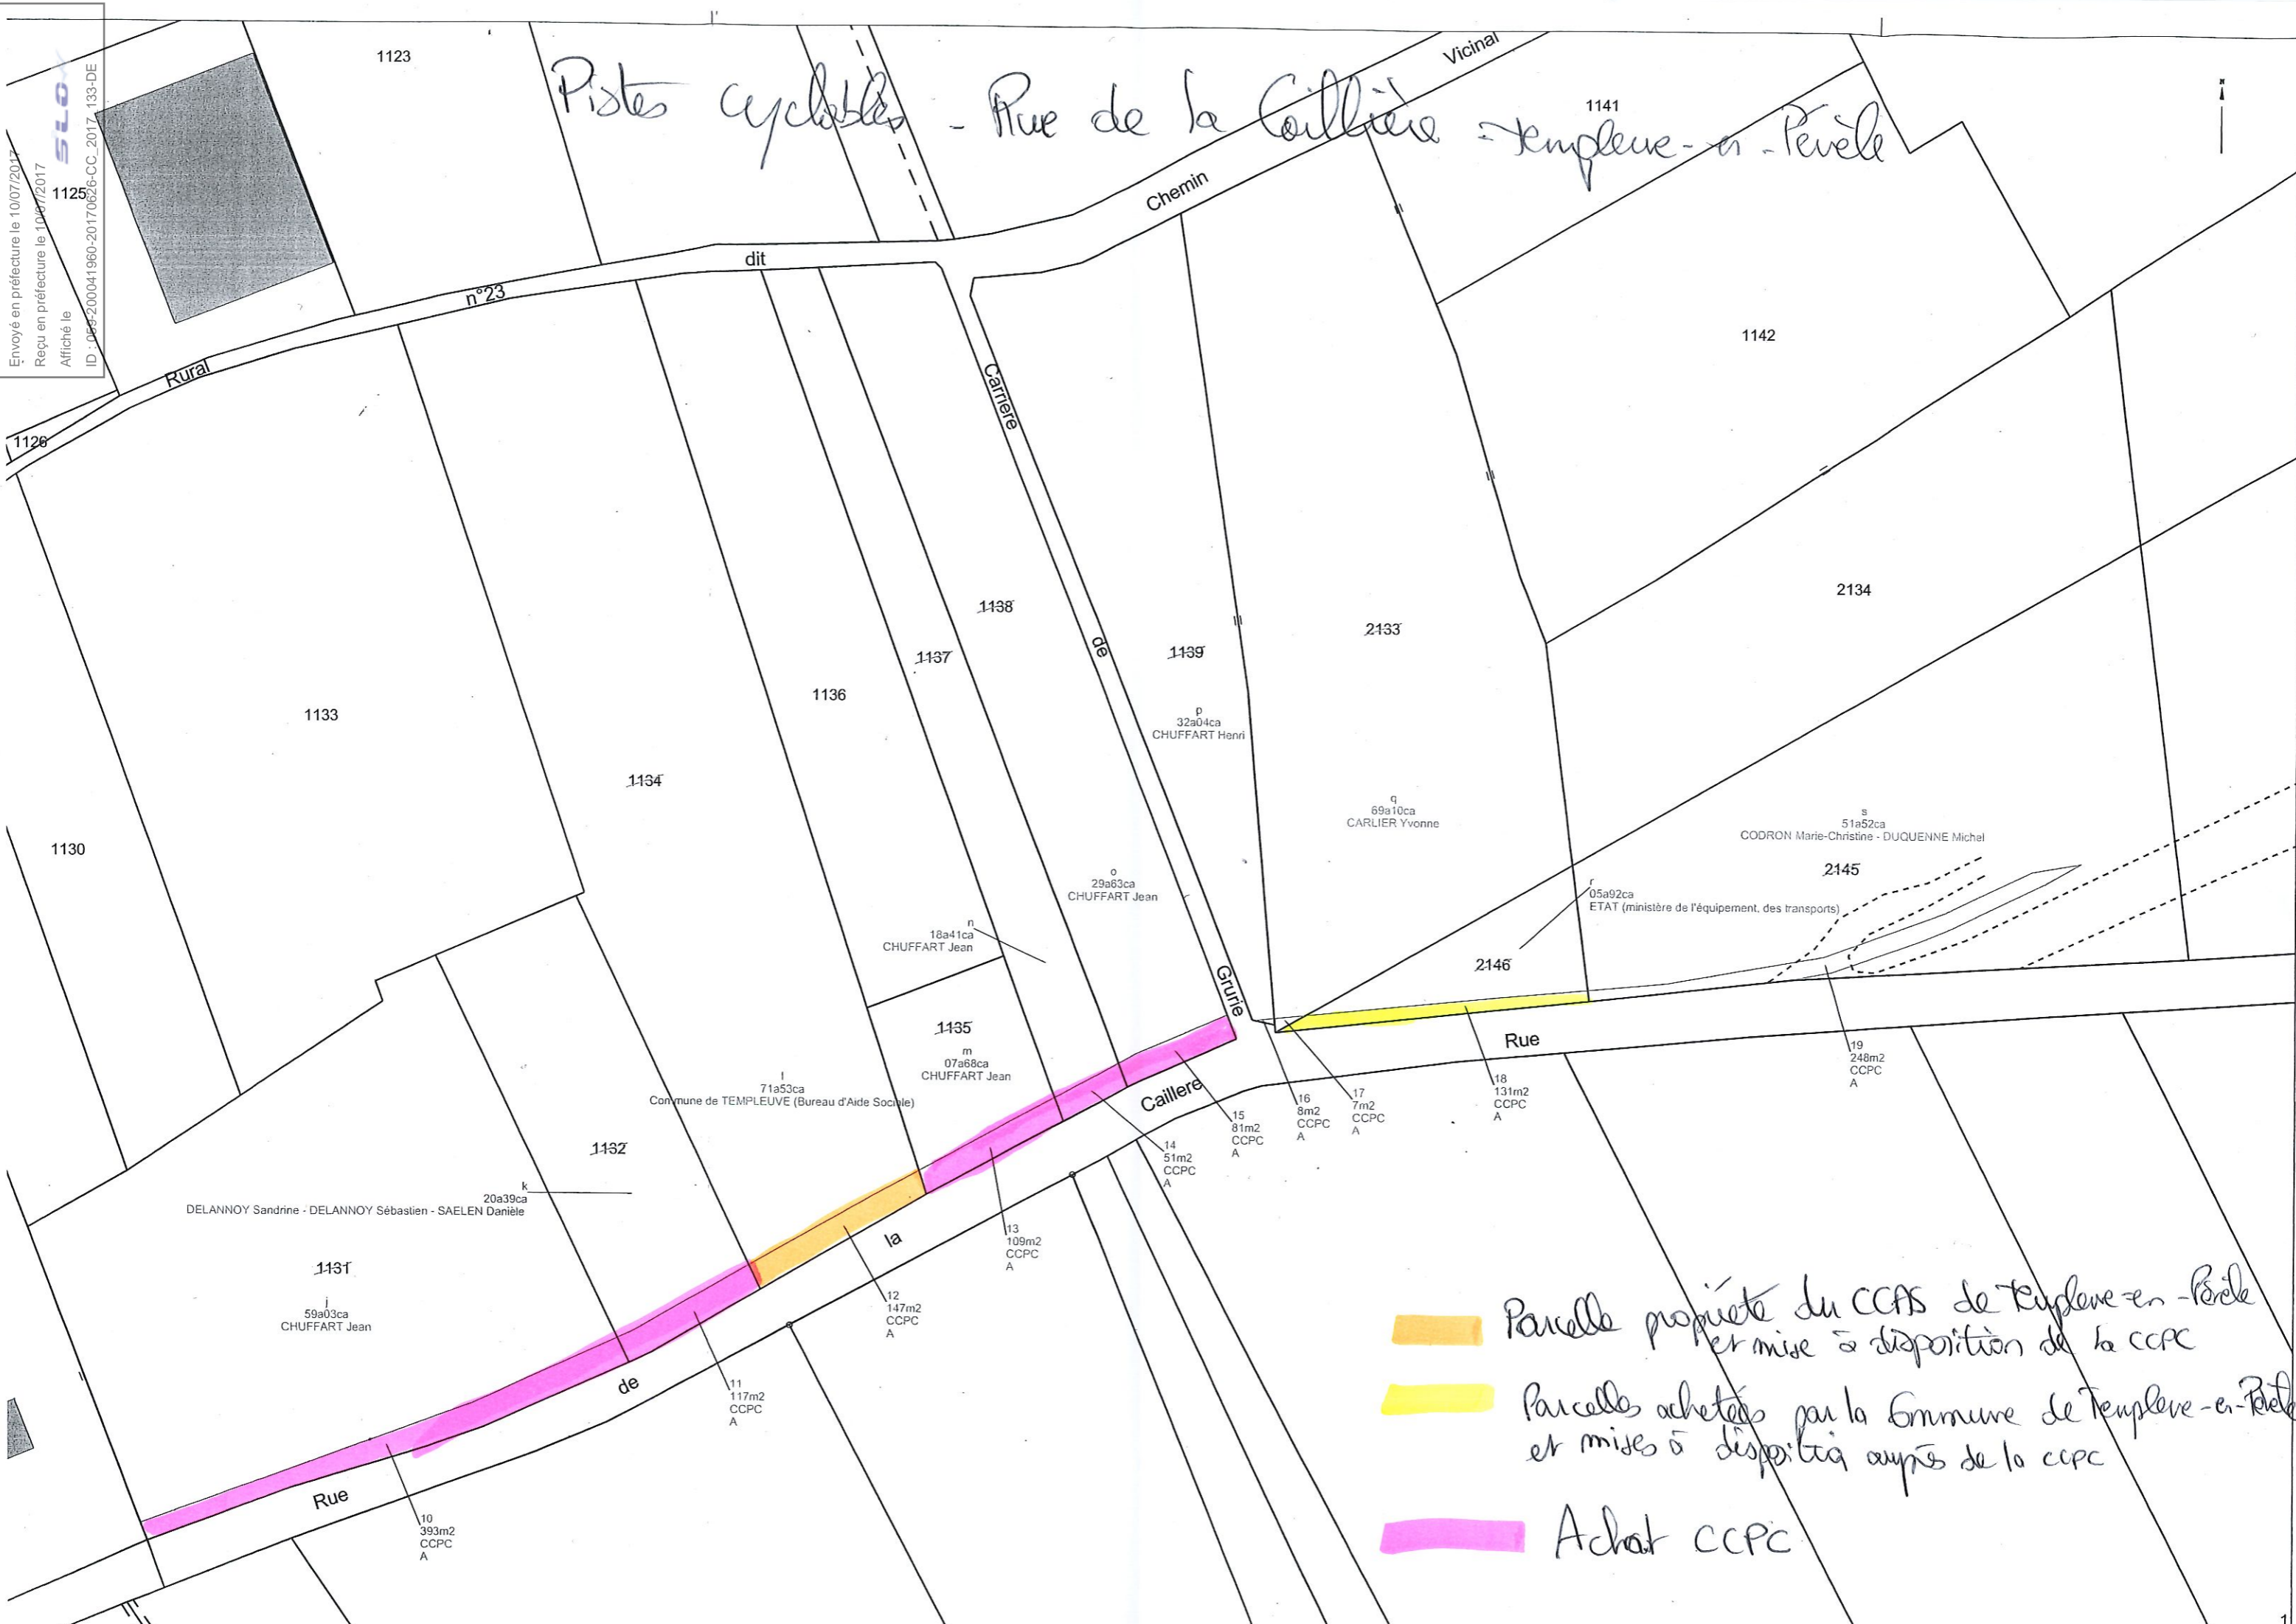 Envoyé en préfecture le 10/07/2017
Reçu en préfecture le 10/07/2017
Affiché le
SLO
ID : 059-200041960-20170626-CC_2017_133-DE
Pistes cyclables - Rue de la Caillière - Templeuve-en-Pévèle
1123
1125
1126
1141
Vicinal
Chemin
dit
n°23
Rural
1142
Carriere
de
Grurie
1138
1137
1136
1139
2133
2134
1133
1134
1130
p
32a04ca
CHUFFART Henri
q
69a10ca
CARLIER Yvonne
s
51a52ca
CODRON Marie-Christine - DUQUENNE Michel
2145
r
05a92ca
ETAT (ministère de l'équipement, des transports)
2146
o
29a63ca
CHUFFART Jean
n
18a41ca
CHUFFART Jean
1135
m
07a68ca
CHUFFART Jean
l
71a53ca
Commune de TEMPLEUVE (Bureau d'Aide Sociale)
1132
k
20a39ca
DELANNOY Sandrine - DELANNOY Sébastien - SAELEN Danièle
1131
j
59a03ca
CHUFFART Jean
Rue
de
la
Caillere
Rue
10
393m2
CCPC
A
11
117m2
CCPC
A
12
147m2
CCPC
A
13
109m2
CCPC
A
14
51m2
CCPC
A
15
81m2
CCPC
A
16
8m2
CCPC
A
17
7m2
CCPC
A
18
131m2
CCPC
A
19
248m2
CCPC
A
Parcelle propriété du CCAS de Templeuve-en-Pévèle
et mise à disposition de la CCPC
Parcelles achetées par la Commune de Templeuve-en-Pévèle
et mises à disposition auprès de la CCPC
Achat CCPC
1